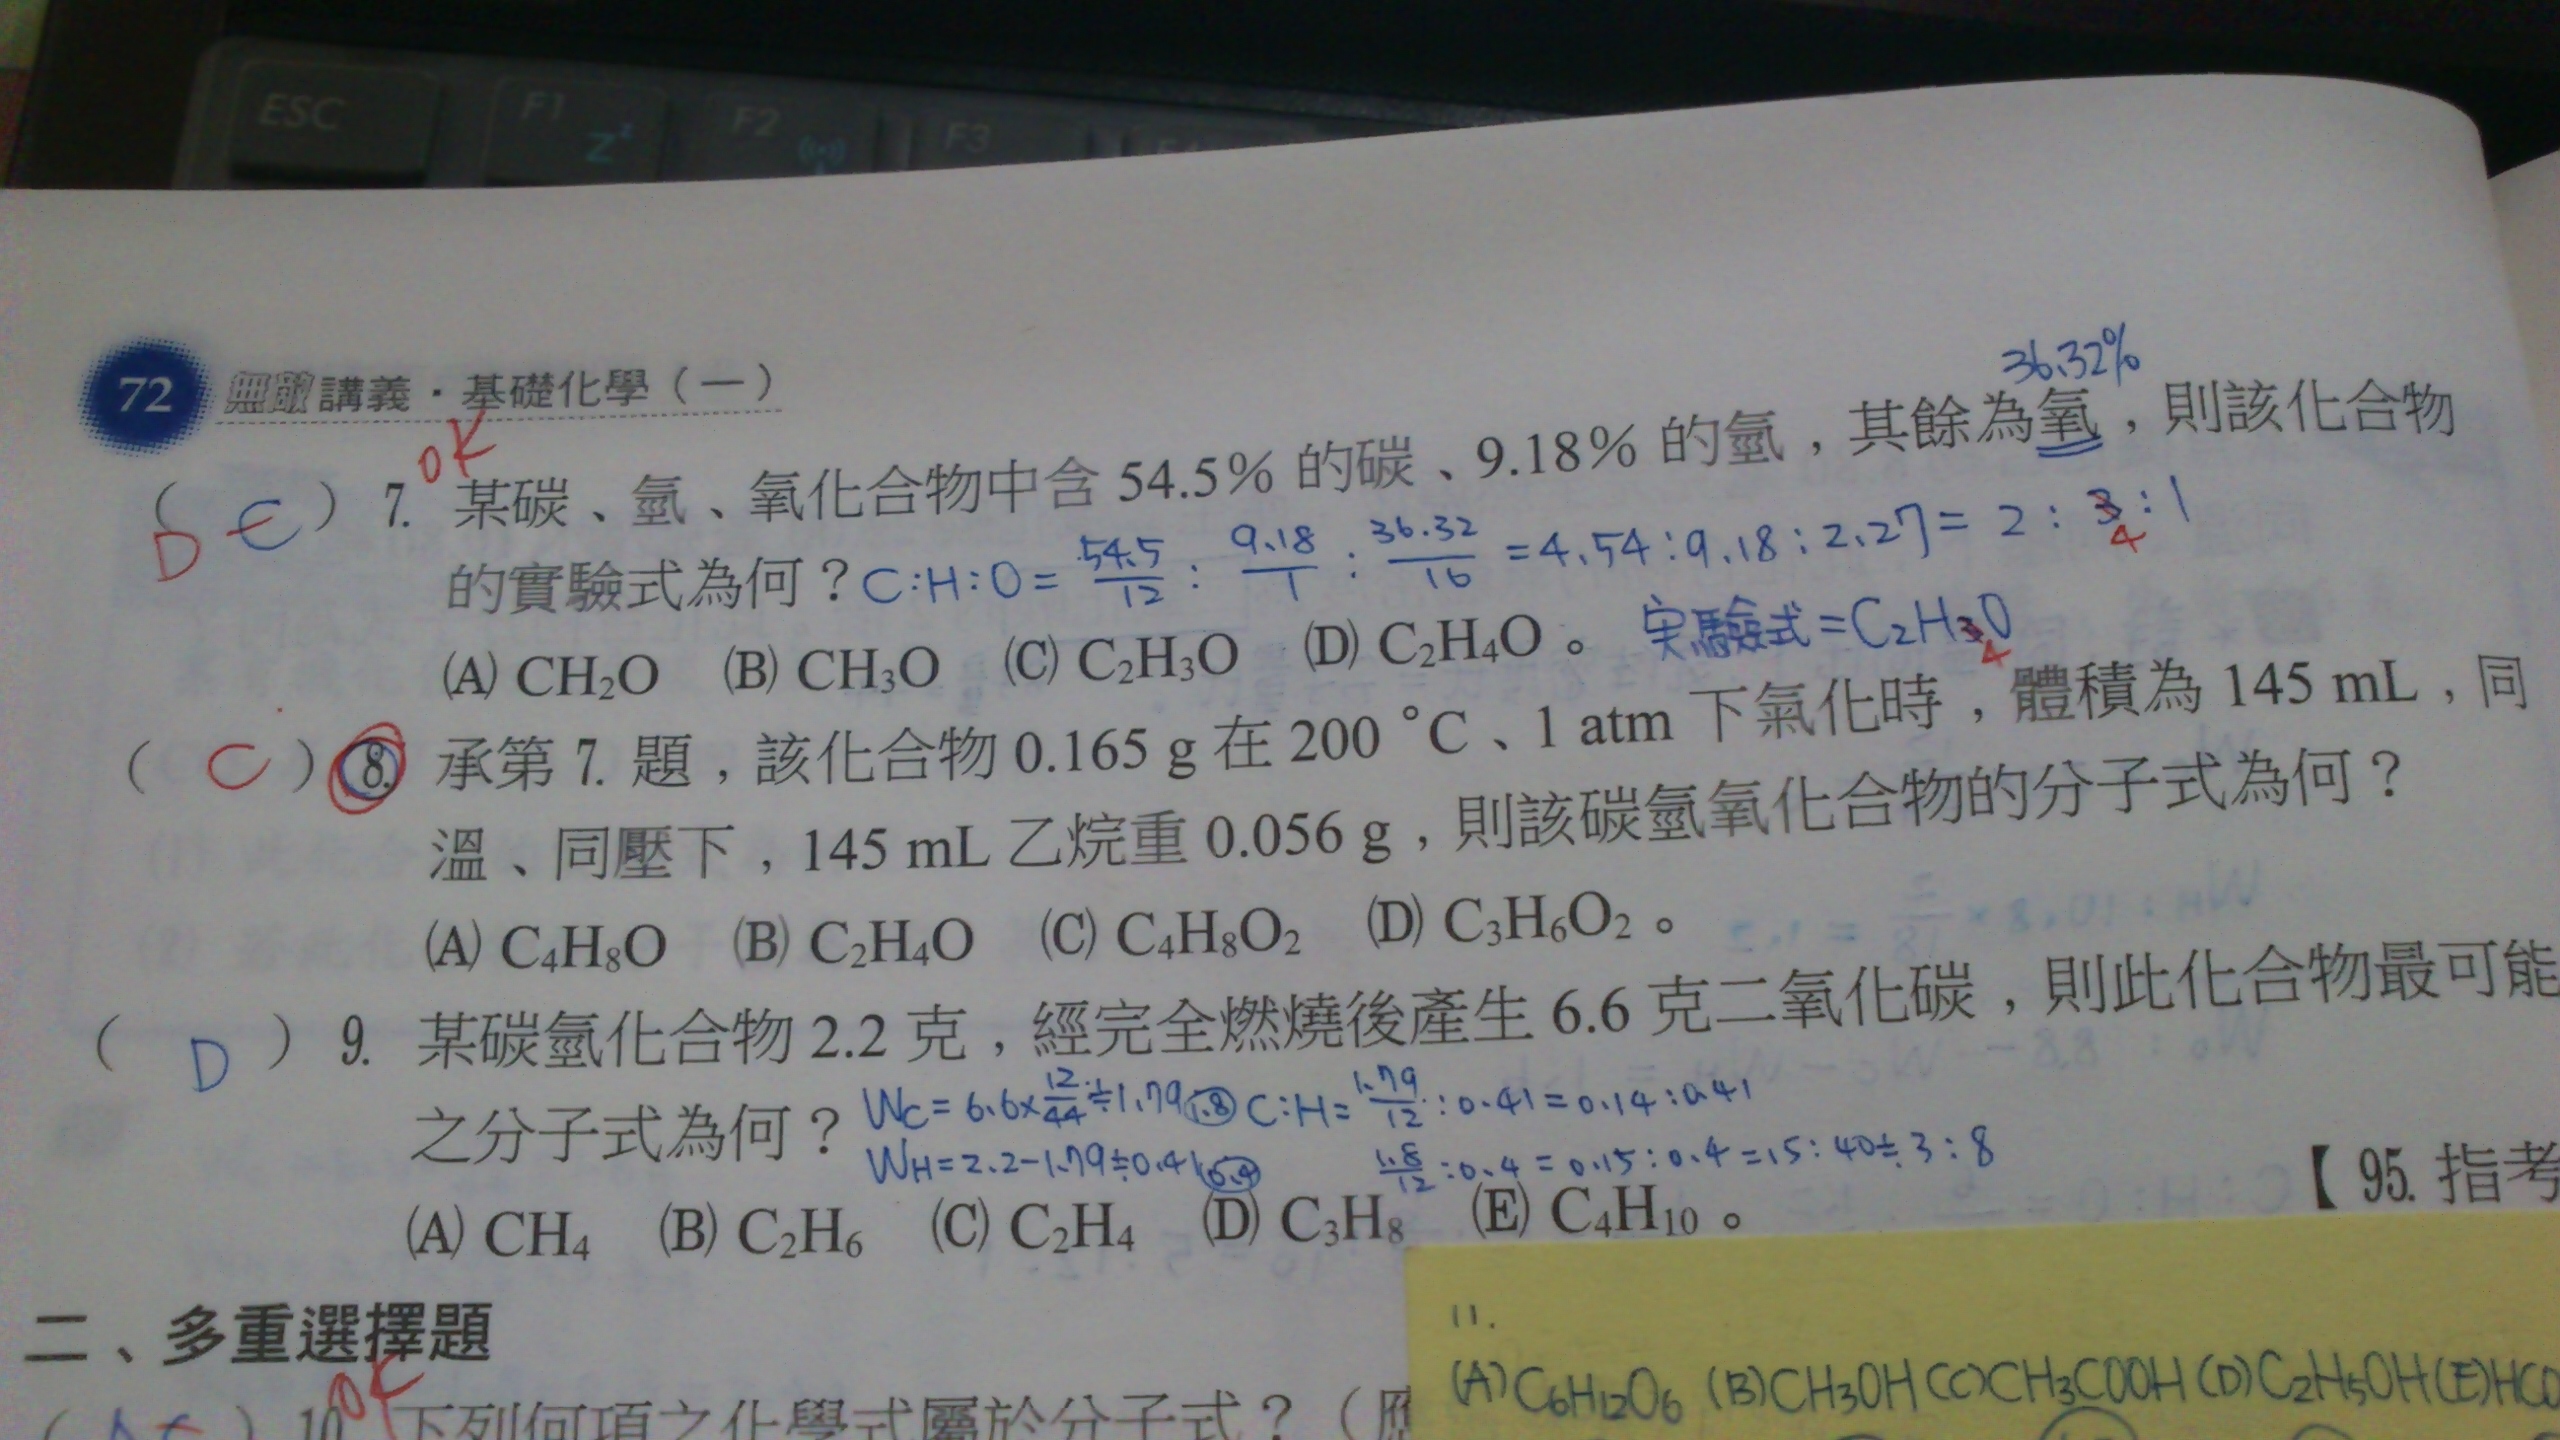 ESC F1 Zz F2 F3
72 無敵講義・基礎化學(一)
36.32%
OK
( D E ) 7. 某碳、氫、氧化合物中含 54.5% 的碳、9.18% 的氫，其餘為氧，則該化合物
的實驗式為何？C:H:O= 54.5/12 : 9.18/1 : 36.32/16 =4.54:9.18:2.27= 2:3:1
4
(A) CH₂O (B) CH₃O (C) C₂H₃O (D) C₂H₄O。 実驗式=C₂H₃O
4
( C ) 8. 承第 7. 題，該化合物 0.165 g 在 200 °C、1 atm 下氣化時，體積為 145 mL，同
溫、同壓下，145 mL 乙烷重 0.056 g，則該碳氫氧化合物的分子式為何？
(A) C₄H₈O (B) C₂H₄O (C) C₄H₈O₂ (D) C₃H₆O₂。
( D ) 9. 某碳氫化合物 2.2 克，經完全燃燒後產生 6.6 克二氧化碳，則此化合物最可能
之分子式為何？ Wc=6.6×12/44≑1.79 1.8 C:H=1.79/12:0.41=0.14:0.41
WH=2.2-1.79≑0.41 1.8/12:0.4=0.15:0.4=15:40≑3:8
【95. 指考
(A) CH₄ (B) C₂H₆ (C) C₂H₄ (D) C₃H₈ (E) C₄H₁₀。
二、多重選擇題
11.
(A)C₆H₁₂O₆ (B)CH₃OH (C)CH₃COOH (D)C₂H₅OH (E)HCO
OK
10. 下列何項之化學式屬於分子式？（應